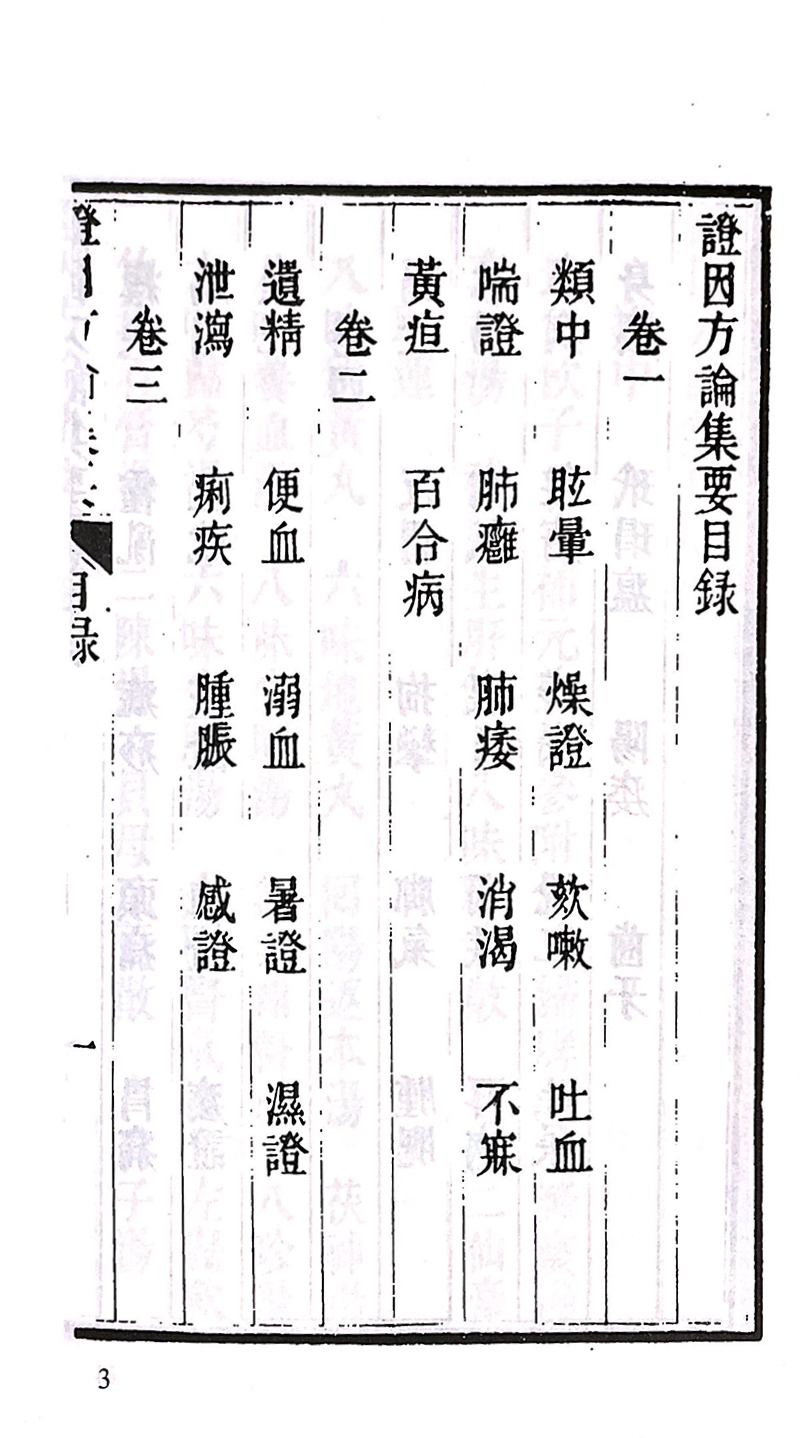 證因方論集要目録
卷一
類中 眩暈 燥證 欬嗽 吐血
喘證 肺癰 肺痿 消渴 不寐
黃疸 百合病
卷二
遺精 便血 溺血 暑證 濕證
泄瀉 痢疾 腫脹 感證
卷三
目録 一
3